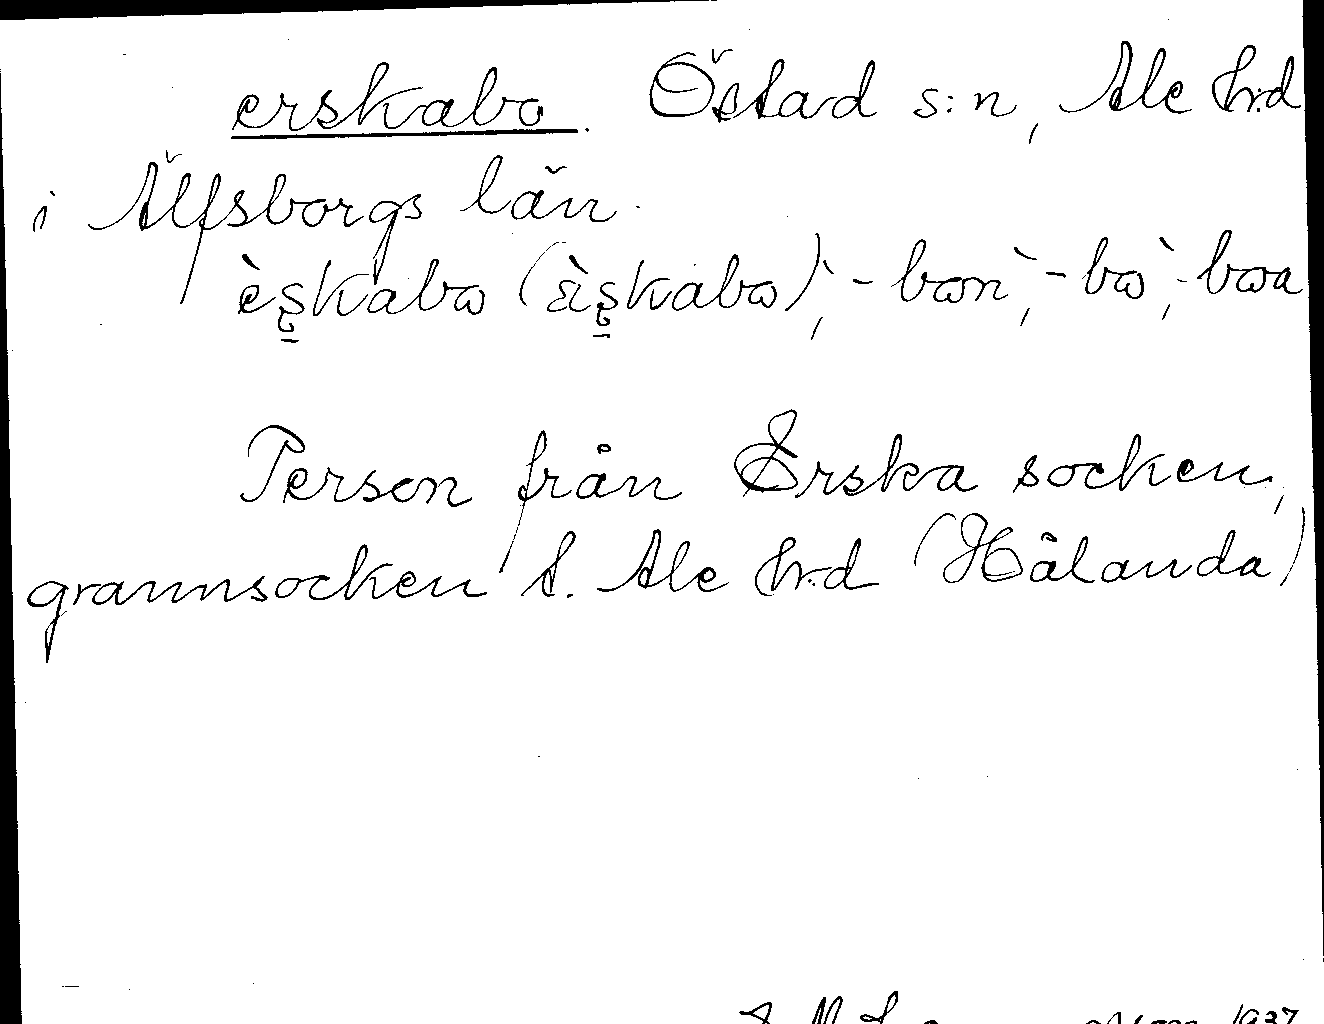 erskabo. Östad s:n, Ale hrd
i Älfsborgs län.
èşkabɷ (ὲşkabɷ), -bɷn`, -bɷ`, -bɷa
Person från Erska socken,
grannsocken t. Ale hrd (Hålanda)
1937